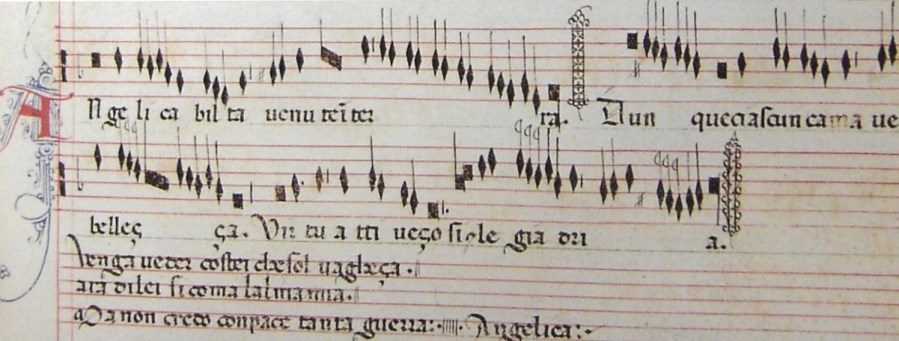 AN ge li ca bil ta uenu teĩ ter ra. Dun que ciascun cama ue
belleç ça. Vir tu a tti ueço si e le gia dri a.
Venga ueder costei che sol uagheça.
aia di lei si coma lalma mia.
Ma non credo con pace tanta guerra: Angelica: